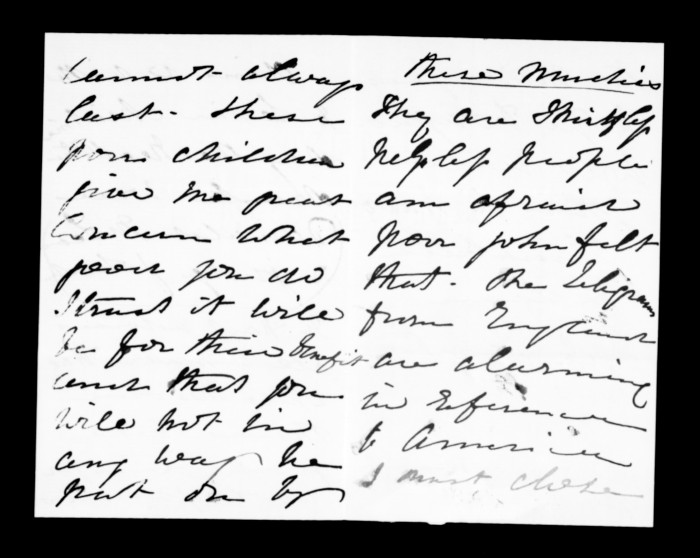 cannot always
last. these
poor children
give me great
concern What
ever you do
I trust it will
be for their benefit
and that you
will not in
any way be
put on by
these
They are Shiftless
helpless people
am afraid
poor John felt
that. The Telegrams
from England
are alarming
in reference
to America
I must close